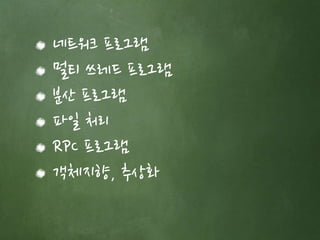 네트워크 프로그램
멀티 쓰레드 프로그램
분산 프로그램
파일 처리
RPC 프로그램
객체지향, 추상화